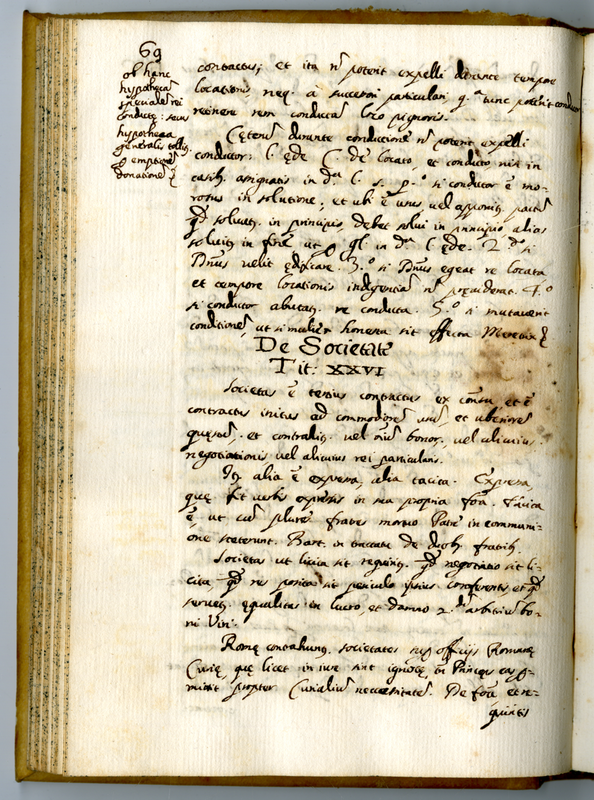 69
ob hanc
hypothecã
specialẽ rei
conductę: secus
hypotheca
generalis tollit
donationẽ
contractus; et ita nõ poterit expelli durante tempore
locationis, neq. à successori particulari q.a tunc poterit conductor
retinere rem conductã loco pignoris.
Cęterũ durante conductione nõ potest expelli
conductor: l. ęde C. de locato, et conducto nisi in
casib. assignatis in d.a l. s. p.o si conductor ẽ mo-
rosus in solutione; et ubi ẽ unus vel appositũ pactũ
qd solvat. in principio, debet solvi in principio alias
solvit. in fine ut gl. in d.a l. ęde. 2.do si
Dñus velit ędificare. 3.o si Dñus egeat re locata
et tempore locationis indigentiã nõ prævideret. 4.o
si conductor abutat. re conducta. 5.o si mutaverit
conditionẽ, ut si mulier honesta sit effecta Meretrix
De Societate
Tit: XXVI
Societas ẽ tertius contractus ex consensu, et ẽ
contractus initus ad commodiorẽ usũ, et uberiorẽ
quęstũ, et contrahit. vel oĩum bonor. vel alicuius
negotiationis vel alicuius rei particularis.
Itẽ alia ẽ expressa, alia tacita. Expressa,
quę fit verbis expressis in sua propria forma. Tacita
ẽ, ut cũ plures fratres mortuo Patre in communi-
one steterunt. Bart. in tractatu de duob. fratrib.
Societas ut licita sit requirit. qd negotiatio sit li-
cita, qd res posita sit periculo ipsius conferentis et qd
servet. equalitas in lucro, et damno 2.m arbitriũ bo-
ni Viri.
Romę contrahunt. societates sup officijs Romanę
Curię, quę licet in iure sint ignotę, tñ Princeps eas p-
misit propter Curialiũ necessitatẽ. De forã et re-
quisitis